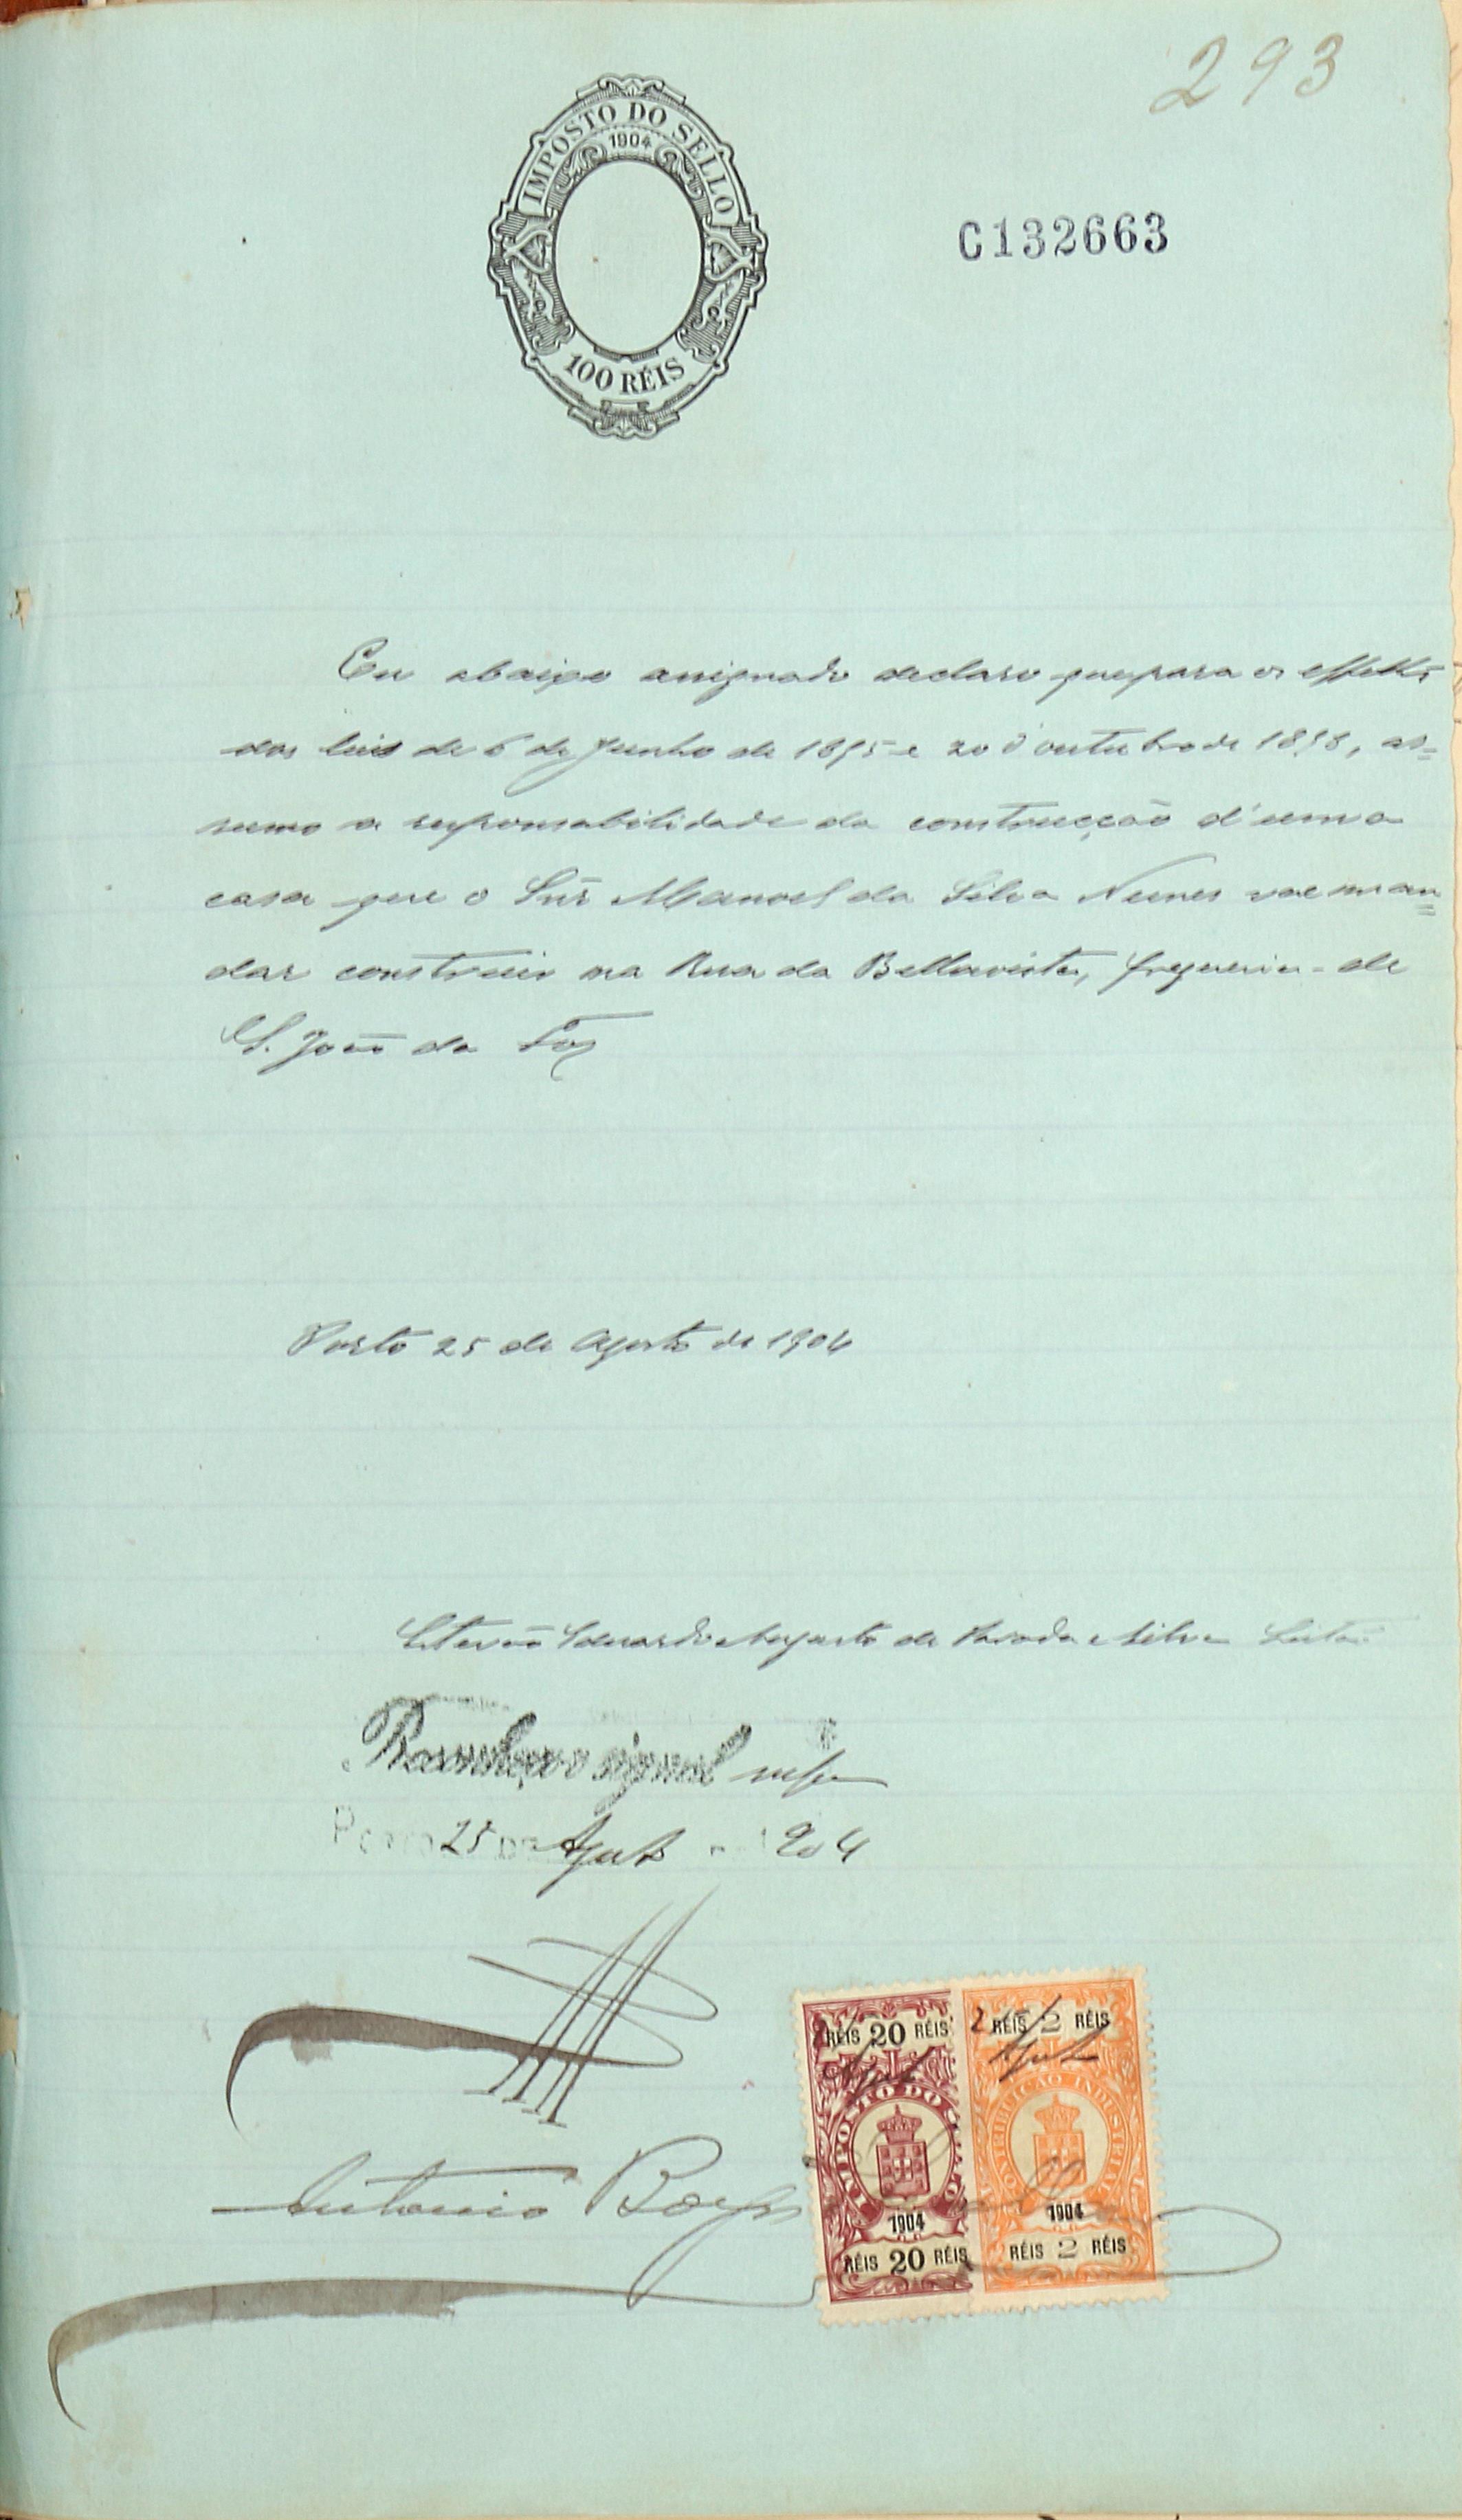 293
IMPOSTO DO SELLO
1904
100 RÉIS
C132663
Eu abaixo assignado declaro que para os effeitos
das leis de 6 de Junho de 1895 e 20 d'outubro de 1898, as=
sumo a responsabilidade da construcção d'uma
casa que o Snr Manoel da Silva Nunes vae man=
dar construir na Rua da Bellavista, freguesia de
S. João da Foz
Porto 25 de Agosto de 1904
Estevão Eduardo Augusto de Parada e Silva Leitão
Reconheço o signal supra
Porto 25 de Agosto 1904
Antonio Borges
RÉIS 20 RÉIS
RÉIS 2 RÉIS
Agosto
Agosto
IMPOSTO DO SELLO
CONTRIBUIÇÃO INDUSTRIAL
1904
1904
RÉIS 20 RÉIS
RÉIS 2 RÉIS